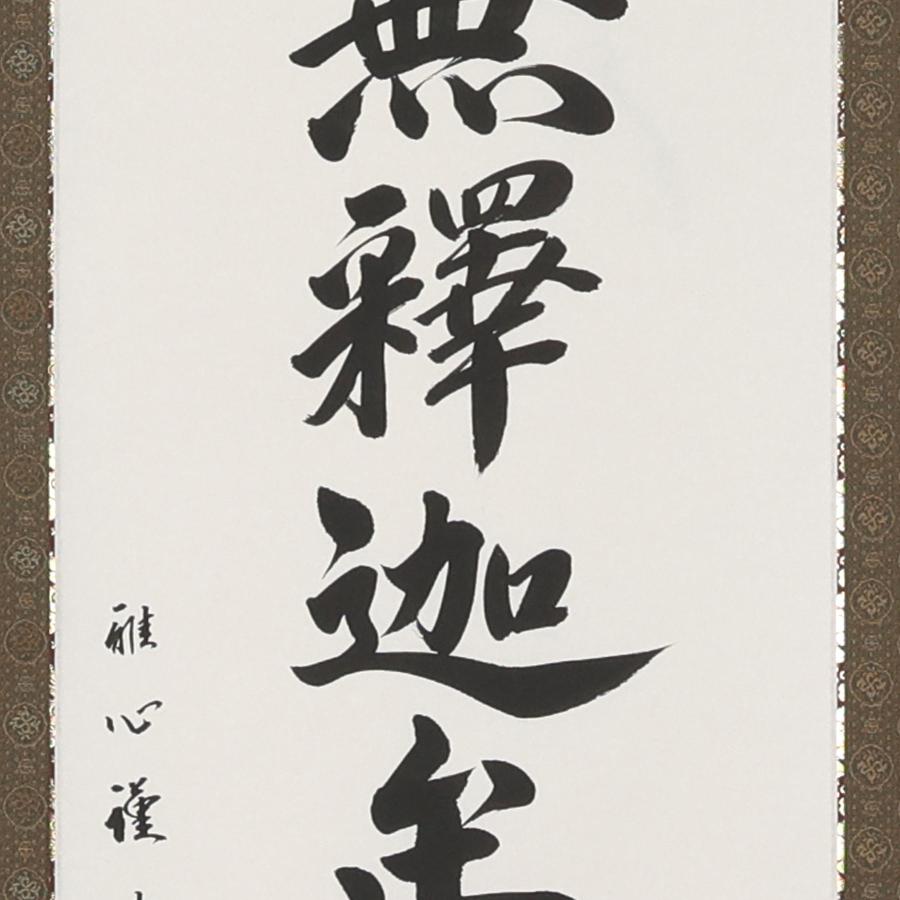 無釋迦牟
雅心謹